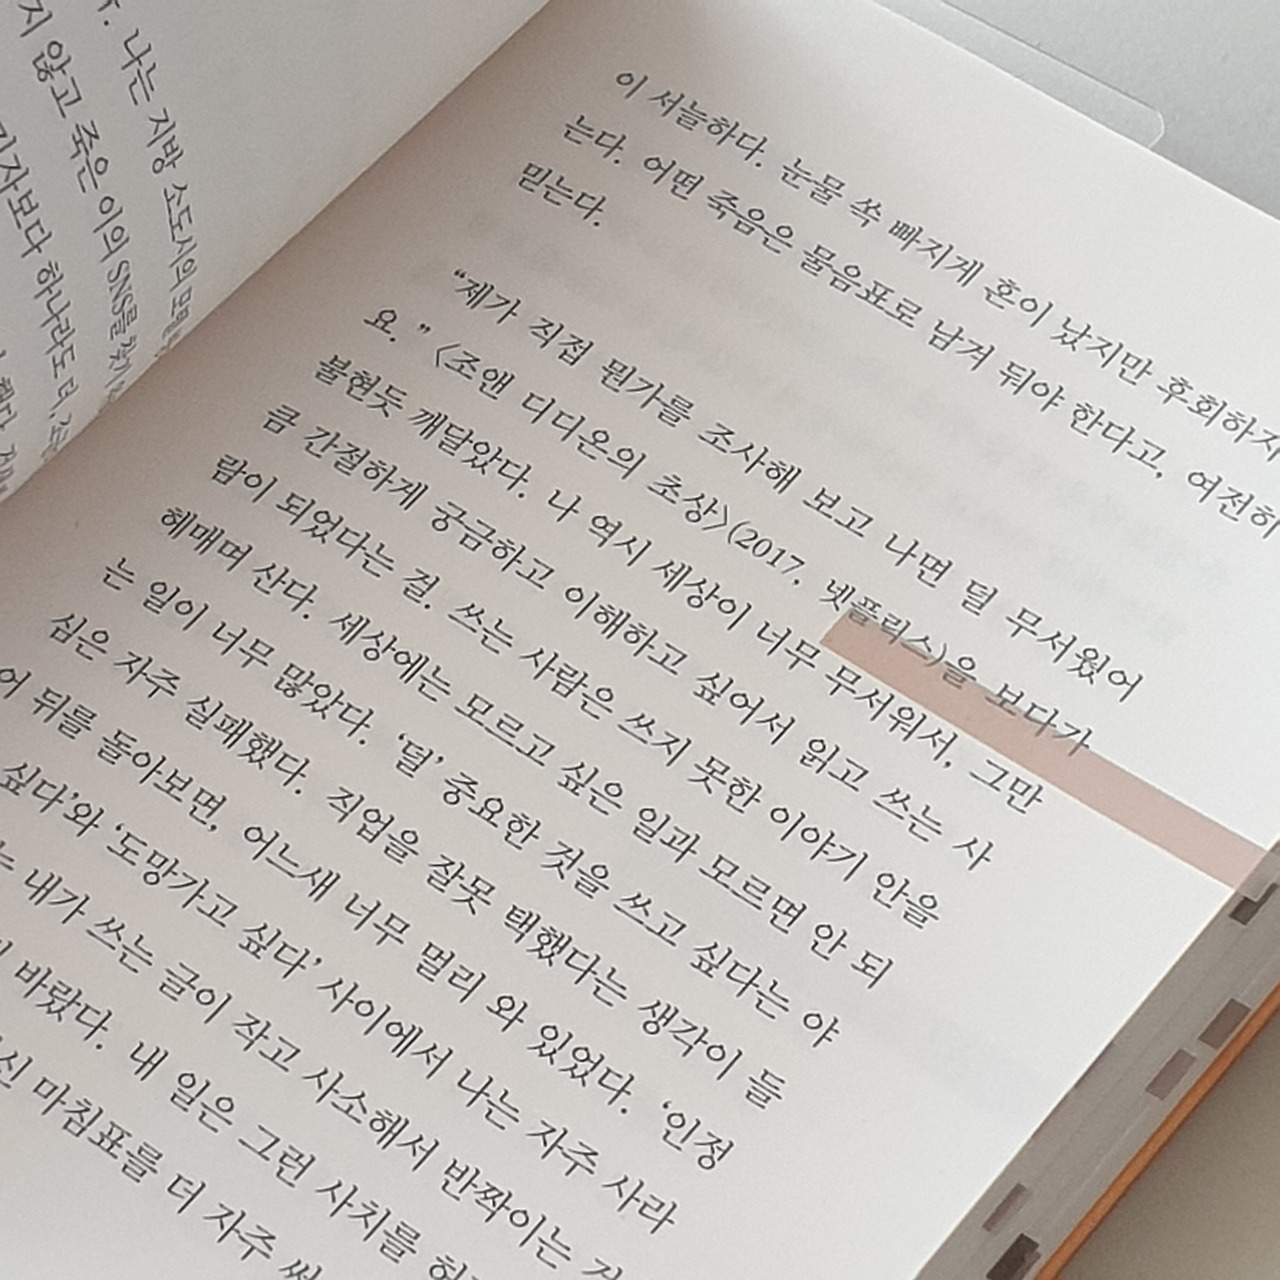 . 나는 지방 소도시의
지 않고 죽은 이의 SNS를 찾기
미자보다 하나라도 더,
이 서늘하다. 눈물 쏙 빠지게 혼이 났지만 후회하지
는다. 어떤 죽음은 물음표로 남겨 둬야 한다고, 여전히
믿는다.
“제가 직접 뭔가를 조사해 보고 나면 덜 무서웠어
요.” 〈조앤 디디온의 초상〉(2017, 넷플릭스)을 보다가
불현듯 깨달았다. 나 역시 세상이 너무 무서워서, 그만
큼 간절하게 궁금하고 이해하고 싶어서 읽고 쓰는 사
람이 되었다는 걸. 쓰는 사람은 쓰지 못한 이야기 안을
헤매며 산다. 세상에는 모르고 싶은 일과 모르면 안 되
는 일이 너무 많았다. ‘덜’ 중요한 것을 쓰고 싶다는 야
심은 자주 실패했다. 직업을 잘못 택했다는 생각이 들
어 뒤를 돌아보면, 어느새 너무 멀리 와 있었다. ‘인정
싶다’와 ‘도망가고 싶다’ 사이에서 나는 자주 사라
는 내가 쓰는 글이 작고 사소해서 반짝이는
바랐다. 내 일은 그런 사치를
신 마침표를 더 자주